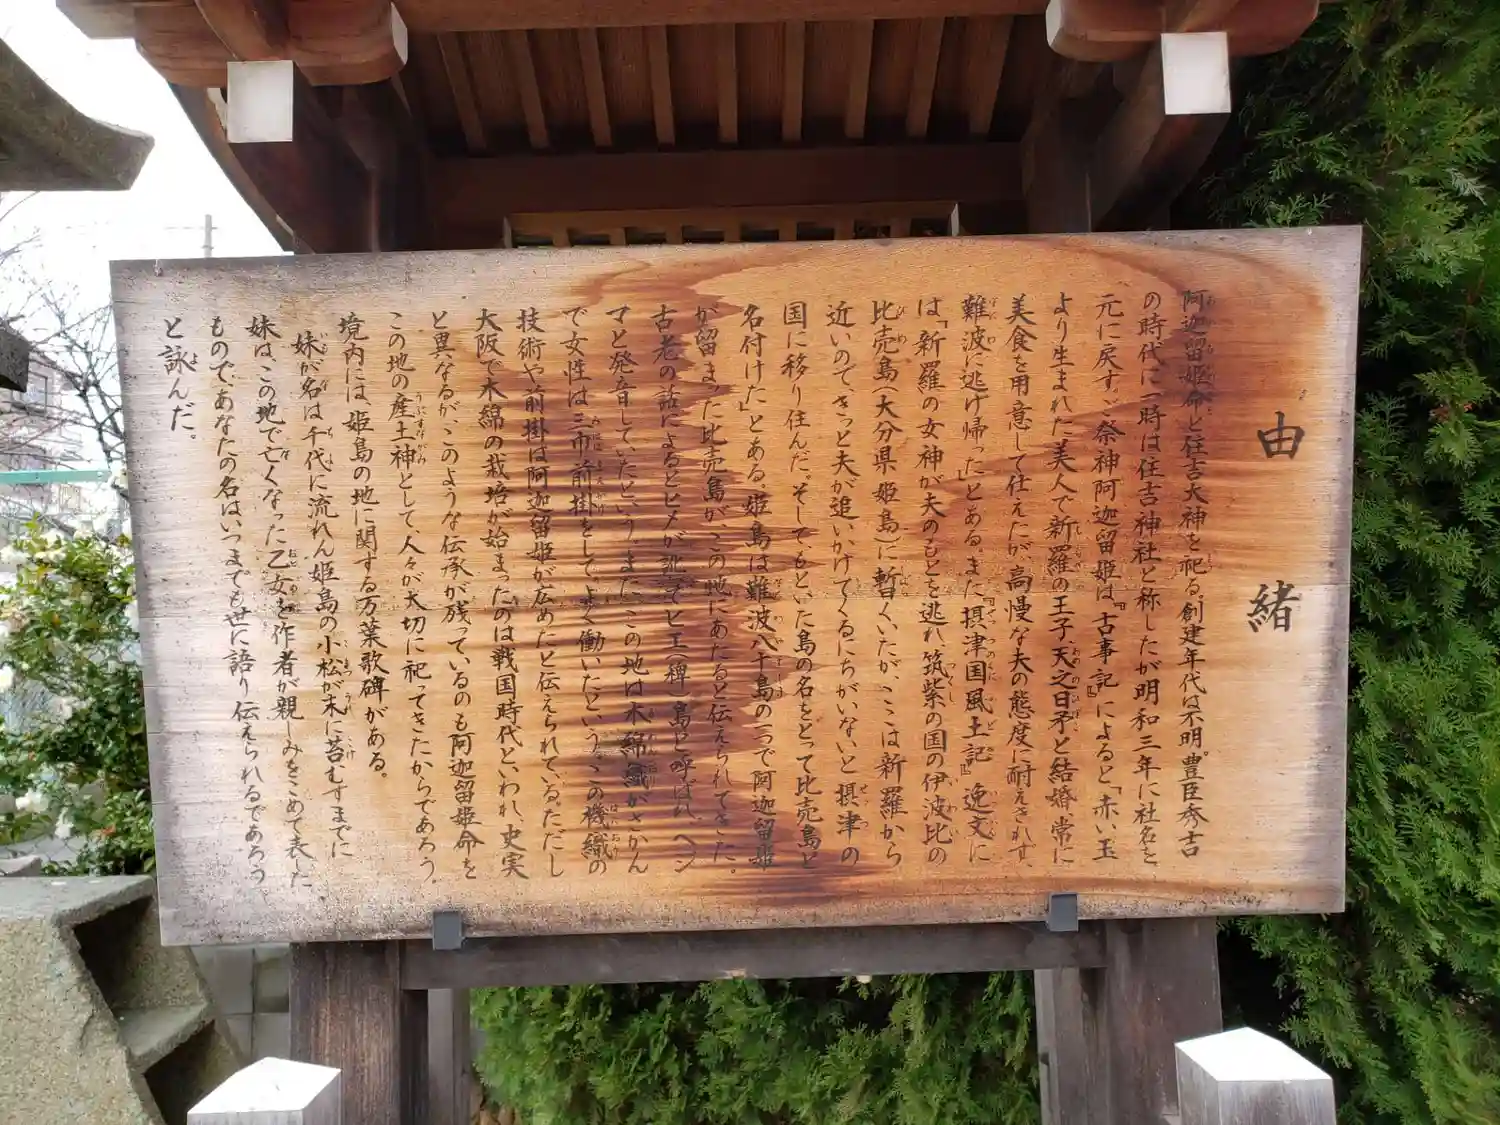 由緒
阿迦留姫命と住吉大神を祀る。創建年代は不明。豊臣秀吉
の時代に一時は住吉神社と称したが明和三年に社名を
元に戻す。祭神阿迦留姫は『古事記』によると「赤い玉
より生まれた美人で新羅の王子、天之日矛と結婚、常に
美食を用意して仕えたが、高慢な夫の態度に耐えきれず、
難波に逃げ帰った」とある。また『摂津国風土記』逸文に
は「新羅の女神が夫のもとを逃れ、筑紫の国の伊波比の
比売島(大分県姫島)に暫くいたが、ここは新羅から
近いので、きっと夫が追いかけてくるにちがいないと摂津の
国に移り住んだ。そしてもといた島の名をとって比売島と
名付けた」とある。姫島は難波八十島の一つで阿迦留姫
が留まった比売島が、この地にあたると伝えられてきた。
古老の話によるとヒメが訛ってヒエ(稗)島と呼ばれ、ヘン
マと発音していたという。また、この地は木綿織がさかん
で女性は三巾前掛をして、よく働いたという。この機織の
技術や前掛は阿迦留姫が広めたと伝えられている。ただし
大阪で木綿の栽培が始まったのは戦国時代といわれ、史実
と異なるが、このような伝承が残っているのも阿迦留姫命を
この地の産土神として、人々が大切に祀ってきたからであろう。
境内には、姫島の地に関する万葉歌碑がある。
妹が名は千代に流れん姫島の小松が末に苔むすまでに
妹は、この地で亡くなった乙女を作者が親しみをこめて表した
もので、あなたの名はいつまでも世に語り伝えられるであろう
と詠んだ。